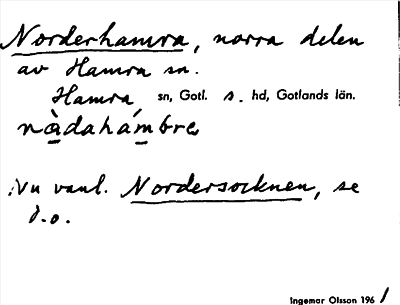 Norderhamra, norra delen
av Hamra sn.
Hamra, sn, Gotl. s. hd, Gotlands län.
nàdahámbre
Nu vanl. Nordersocknen, se
d.o.
Ingemar Olsson 1961